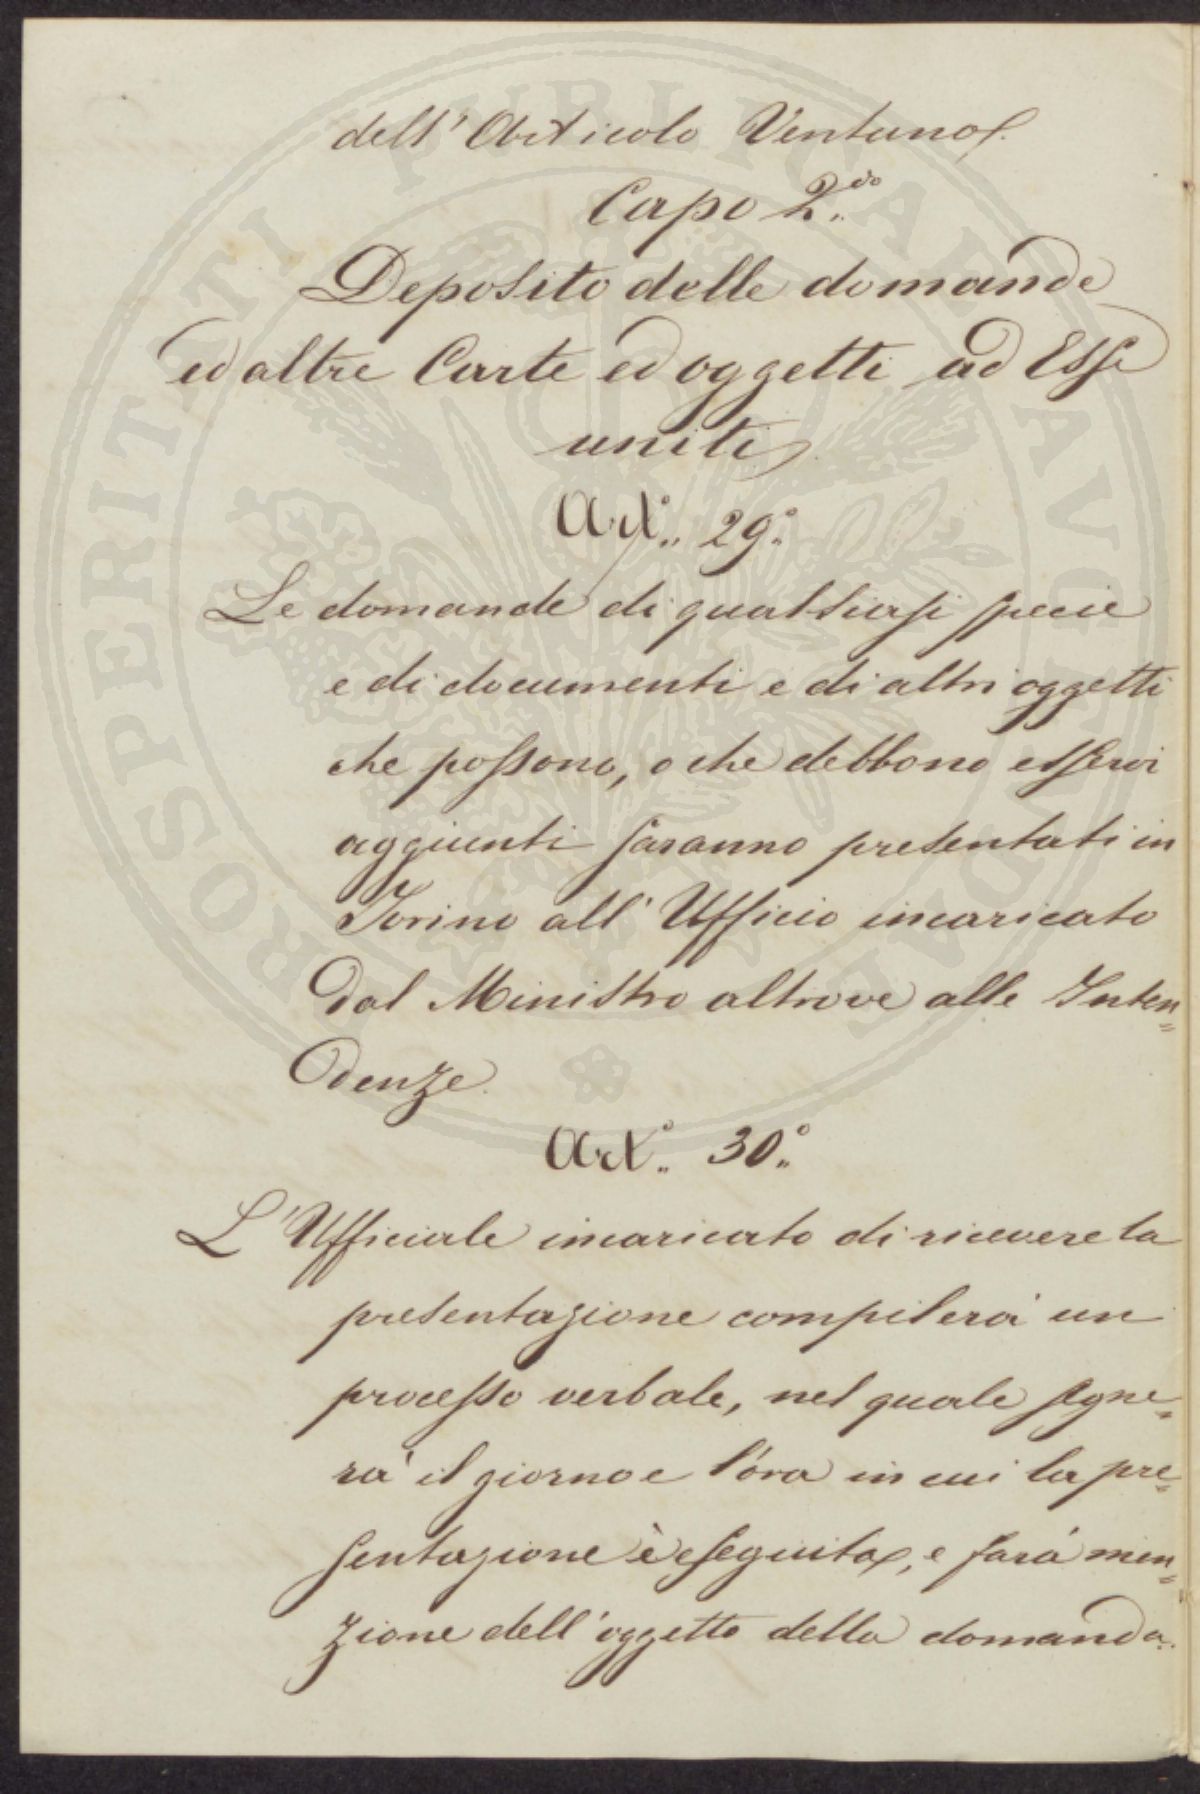 dell' Articolo Ventuno.
Capo 2.do
Deposito delle domande
ed altre Carte ed oggetti ad Esse
uniti
Art.° 29.°
Le domande di qualsiasi specie
e di documenti e di altri oggetti
che possono, o che debbono esservi
aggiunti saranno presentati in
Torino all' Ufficio incaricato
dal Ministro altrove alle Inten=
denze.
Art.° 30.°
L'Ufficiale incaricato di ricevere la
presentazione compilerà un
processo verbale, nel quale segne=
rà il giorno e l'ora in cui la pre=
sentazione è eseguita, e farà men=
zione dell'oggetto della domanda.